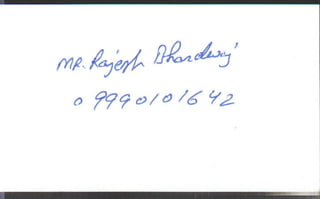 MR. Rajesh Bhardwaj
09990101642